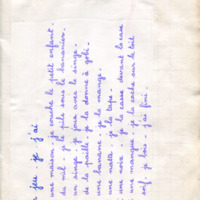 jeu je j'ai
une maison. je couche le petit enfant.
du mil. je le pile sous le bananier.
un singe. je joue avec le singe.
de la paille. je la donne à gobi.
une banane. je la mange.
une natte. je la tape.
une noix. je la casse devant la case
une mangue. je la cache sur le toit
soif. je bois. j'ai fini.